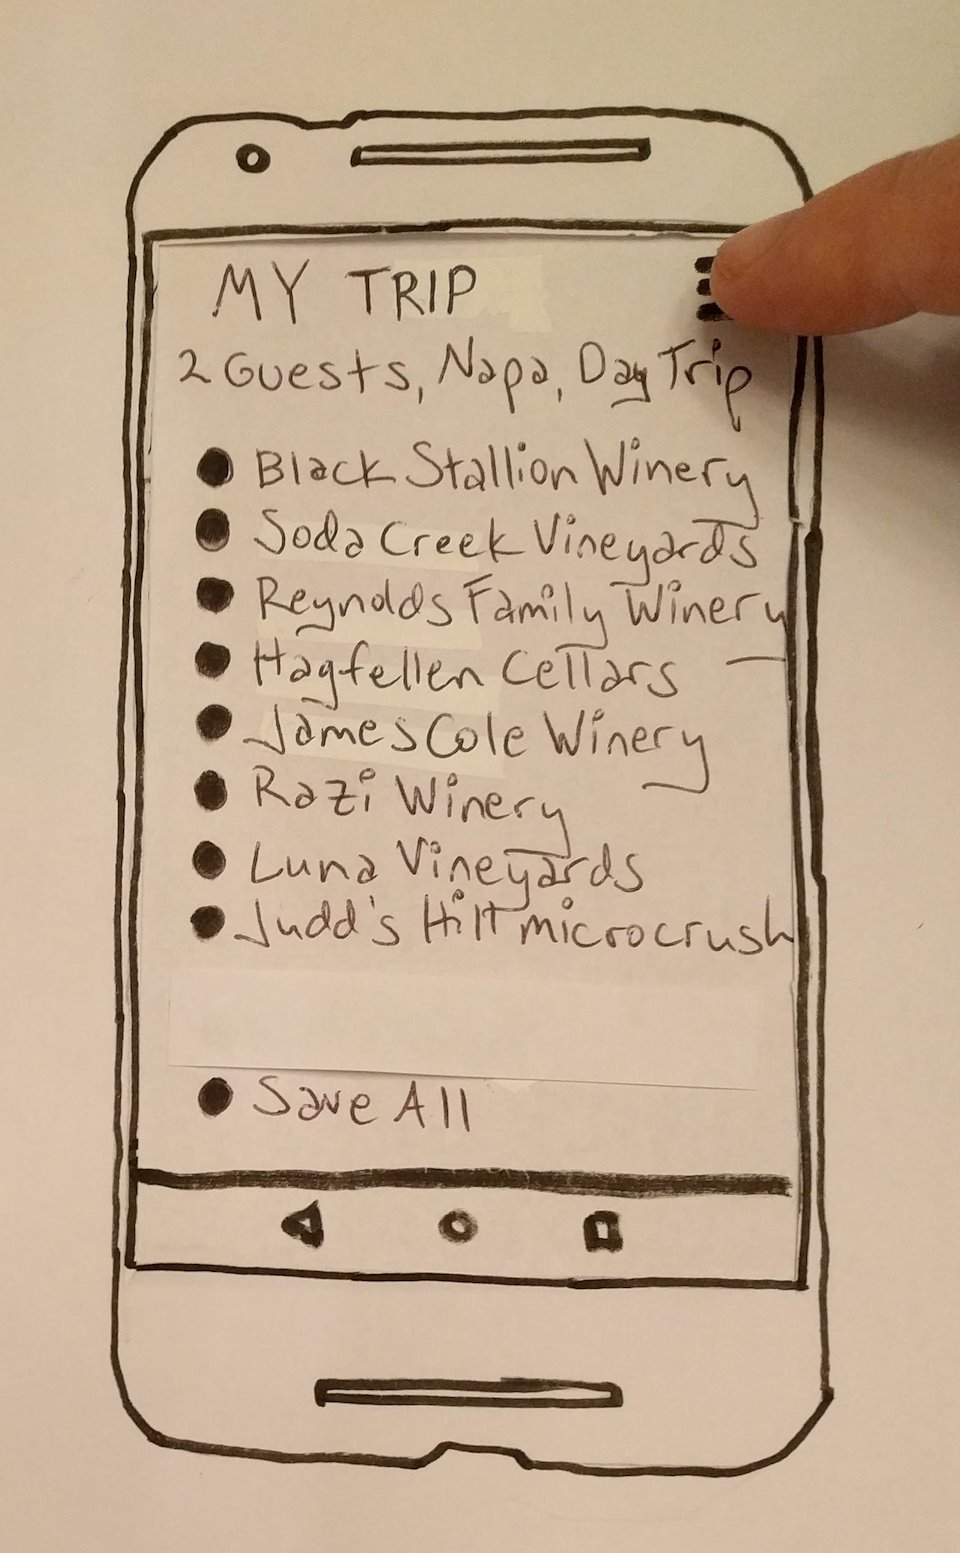 MY TRIP
2 Guests, Napa, Day Trip
Black Stallion Winery
Soda Creek Vineyards
Reynolds Family Winery
Hagfellen Cellars
James Cole Winery
Razi Winery
Luna Vineyards
Judd's Hill microcrush
Save All